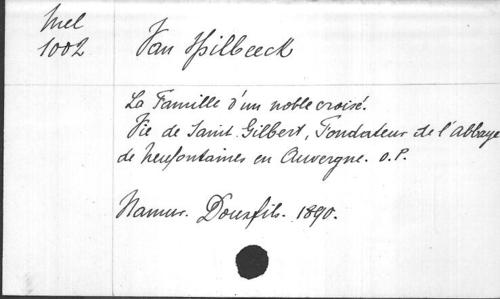 Mel
1002
Van Spilbeeck
La Famille d'un noble croisé.
Vie de Saint Gilbert, Fondateur de l'Abbaye
de Neuffontaines en Auvergne. O.P.
Namur. Douxfils. 1890.